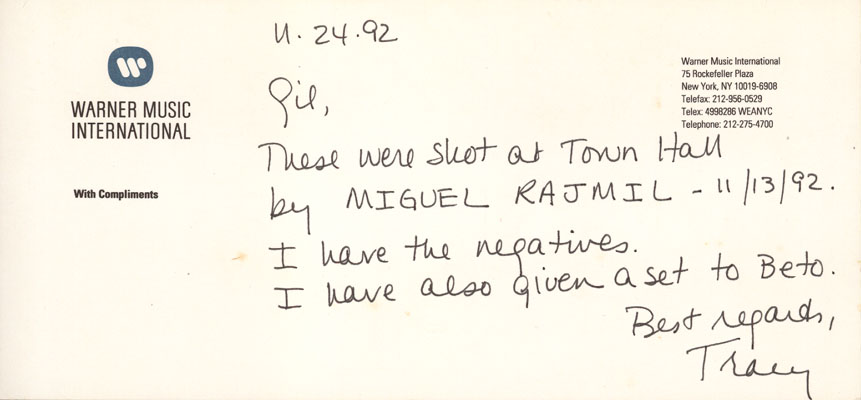 11.24.92
WARNER MUSIC
INTERNATIONAL
With Compliments
Warner Music International
75 Rockefeller Plaza
New York, NY 10019-6908
Telefax: 212-956-0529
Telex: 4998286 WEANYC
Telephone: 212-275-4700
Gil,
These were shot at Town Hall
by MIGUEL RAJMIL - 11/13/92.
I have the negatives.
I have also given a set to Beto.
Best regards,
Tracy